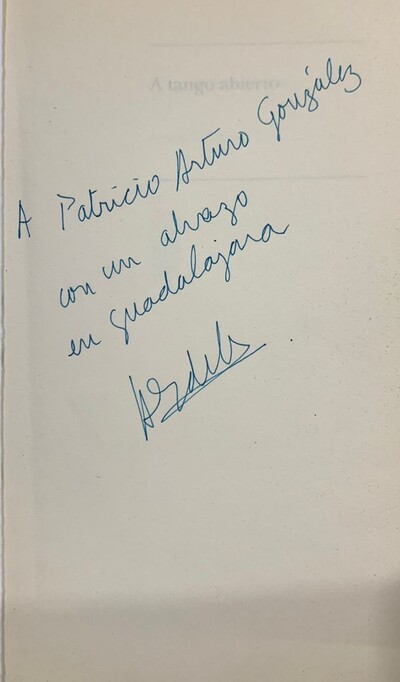 A tango abierto
A Patricio Arturo González
con un abrazo
en guadalajara